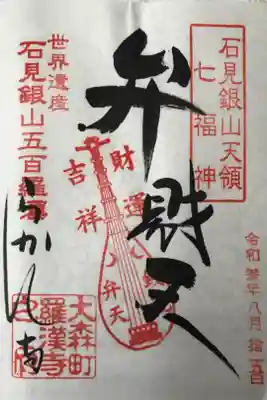 石見銀山天領
七福神
令和参年八月拾五日
弁財天
財運
吉祥
八臂弁天
世界遺産
石見銀山五百羅漢
らかん寺
大森町
羅漢寺